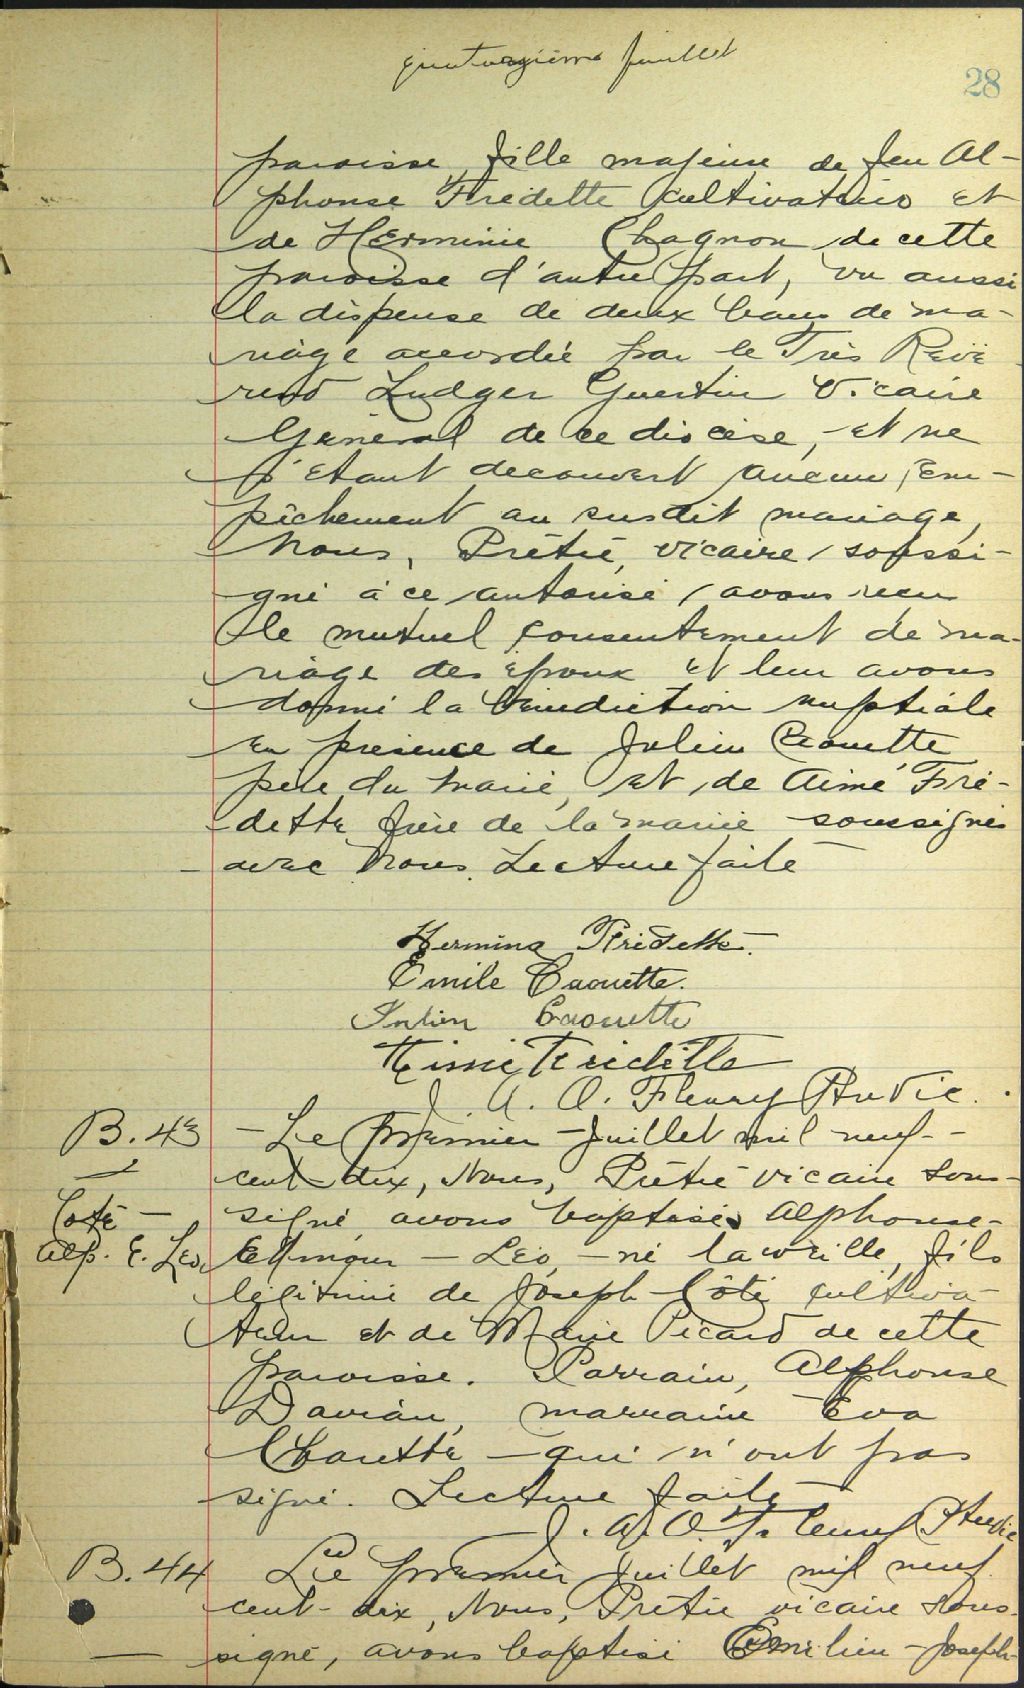 quatorzième feuillet
28
paroisse, fille majeure de feu Al-
phonse Fredette cultivateur et
de Herminie Chagnon de cette
paroisse d'autre part, vu aussi
la dispense de deux bans de ma-
riage accordée par le Très Révé-
rend Ludger Guertin Vicaire
Général de ce diocèse, et ne
s'étant decouvert aucun em-
pêchement au susdit mariage,
Nous, Prêtre, vicaire, soussi-
gné à ce autorisé, avons reçu
le mutuel consentement de ma-
riage des époux et leur avons
donné la bénédiction nuptiale
en présence de Julien Caouette
père du marié, et de Aimé Fré-
dette frère de la mariée soussignés
avec Nous. Lecture faite
Hermina Fridette.
Emile Caouette.
Julien Caouette
Aimé Fridette
J. A. O. Fleury Ptre Vic.
B. 43
Coté
Alp. E. Leo
Le premier Juillet mil neuf-
cent-dix, Nous, Prêtre vicaire sous-
signé avons baptisé Alphonse-
- Léo, né la veille, fils
légitime de Joseph Côté cultiva-
teur et de Marie Picard de cette
paroisse. Parrain, Alphonse
marraine Eva
qui n'ont pas
signé. Lecture faite
J. A. O. Fleury Ptre Vic
B. 44
Le premier Juillet mil neuf
cent-dix, Nous, Prêtre vicaire sous-
signé, avons baptisé Emilien-Joseph-